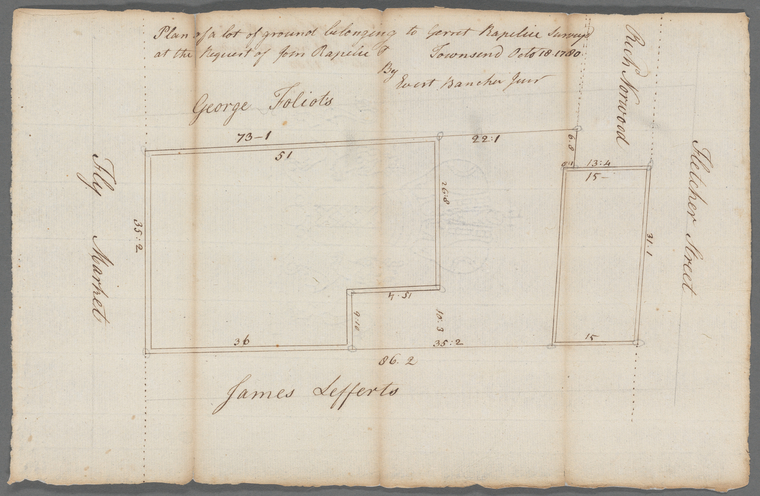 Plan of a lot of ground belonging to Garret Rapelié Survey'd
at the Request of Rapelié & Townsend Octo. 18. 1780.
By
Evert Bancker Junr
George Foliots
Rich Norwood
Fly Market
Fletcher Street
73-1
51
22:1
6:8
13:4
15-
35:2
26:8
31:1
4:51
9:10
10:3
36
35:2
15-
86.2
James Lefferts